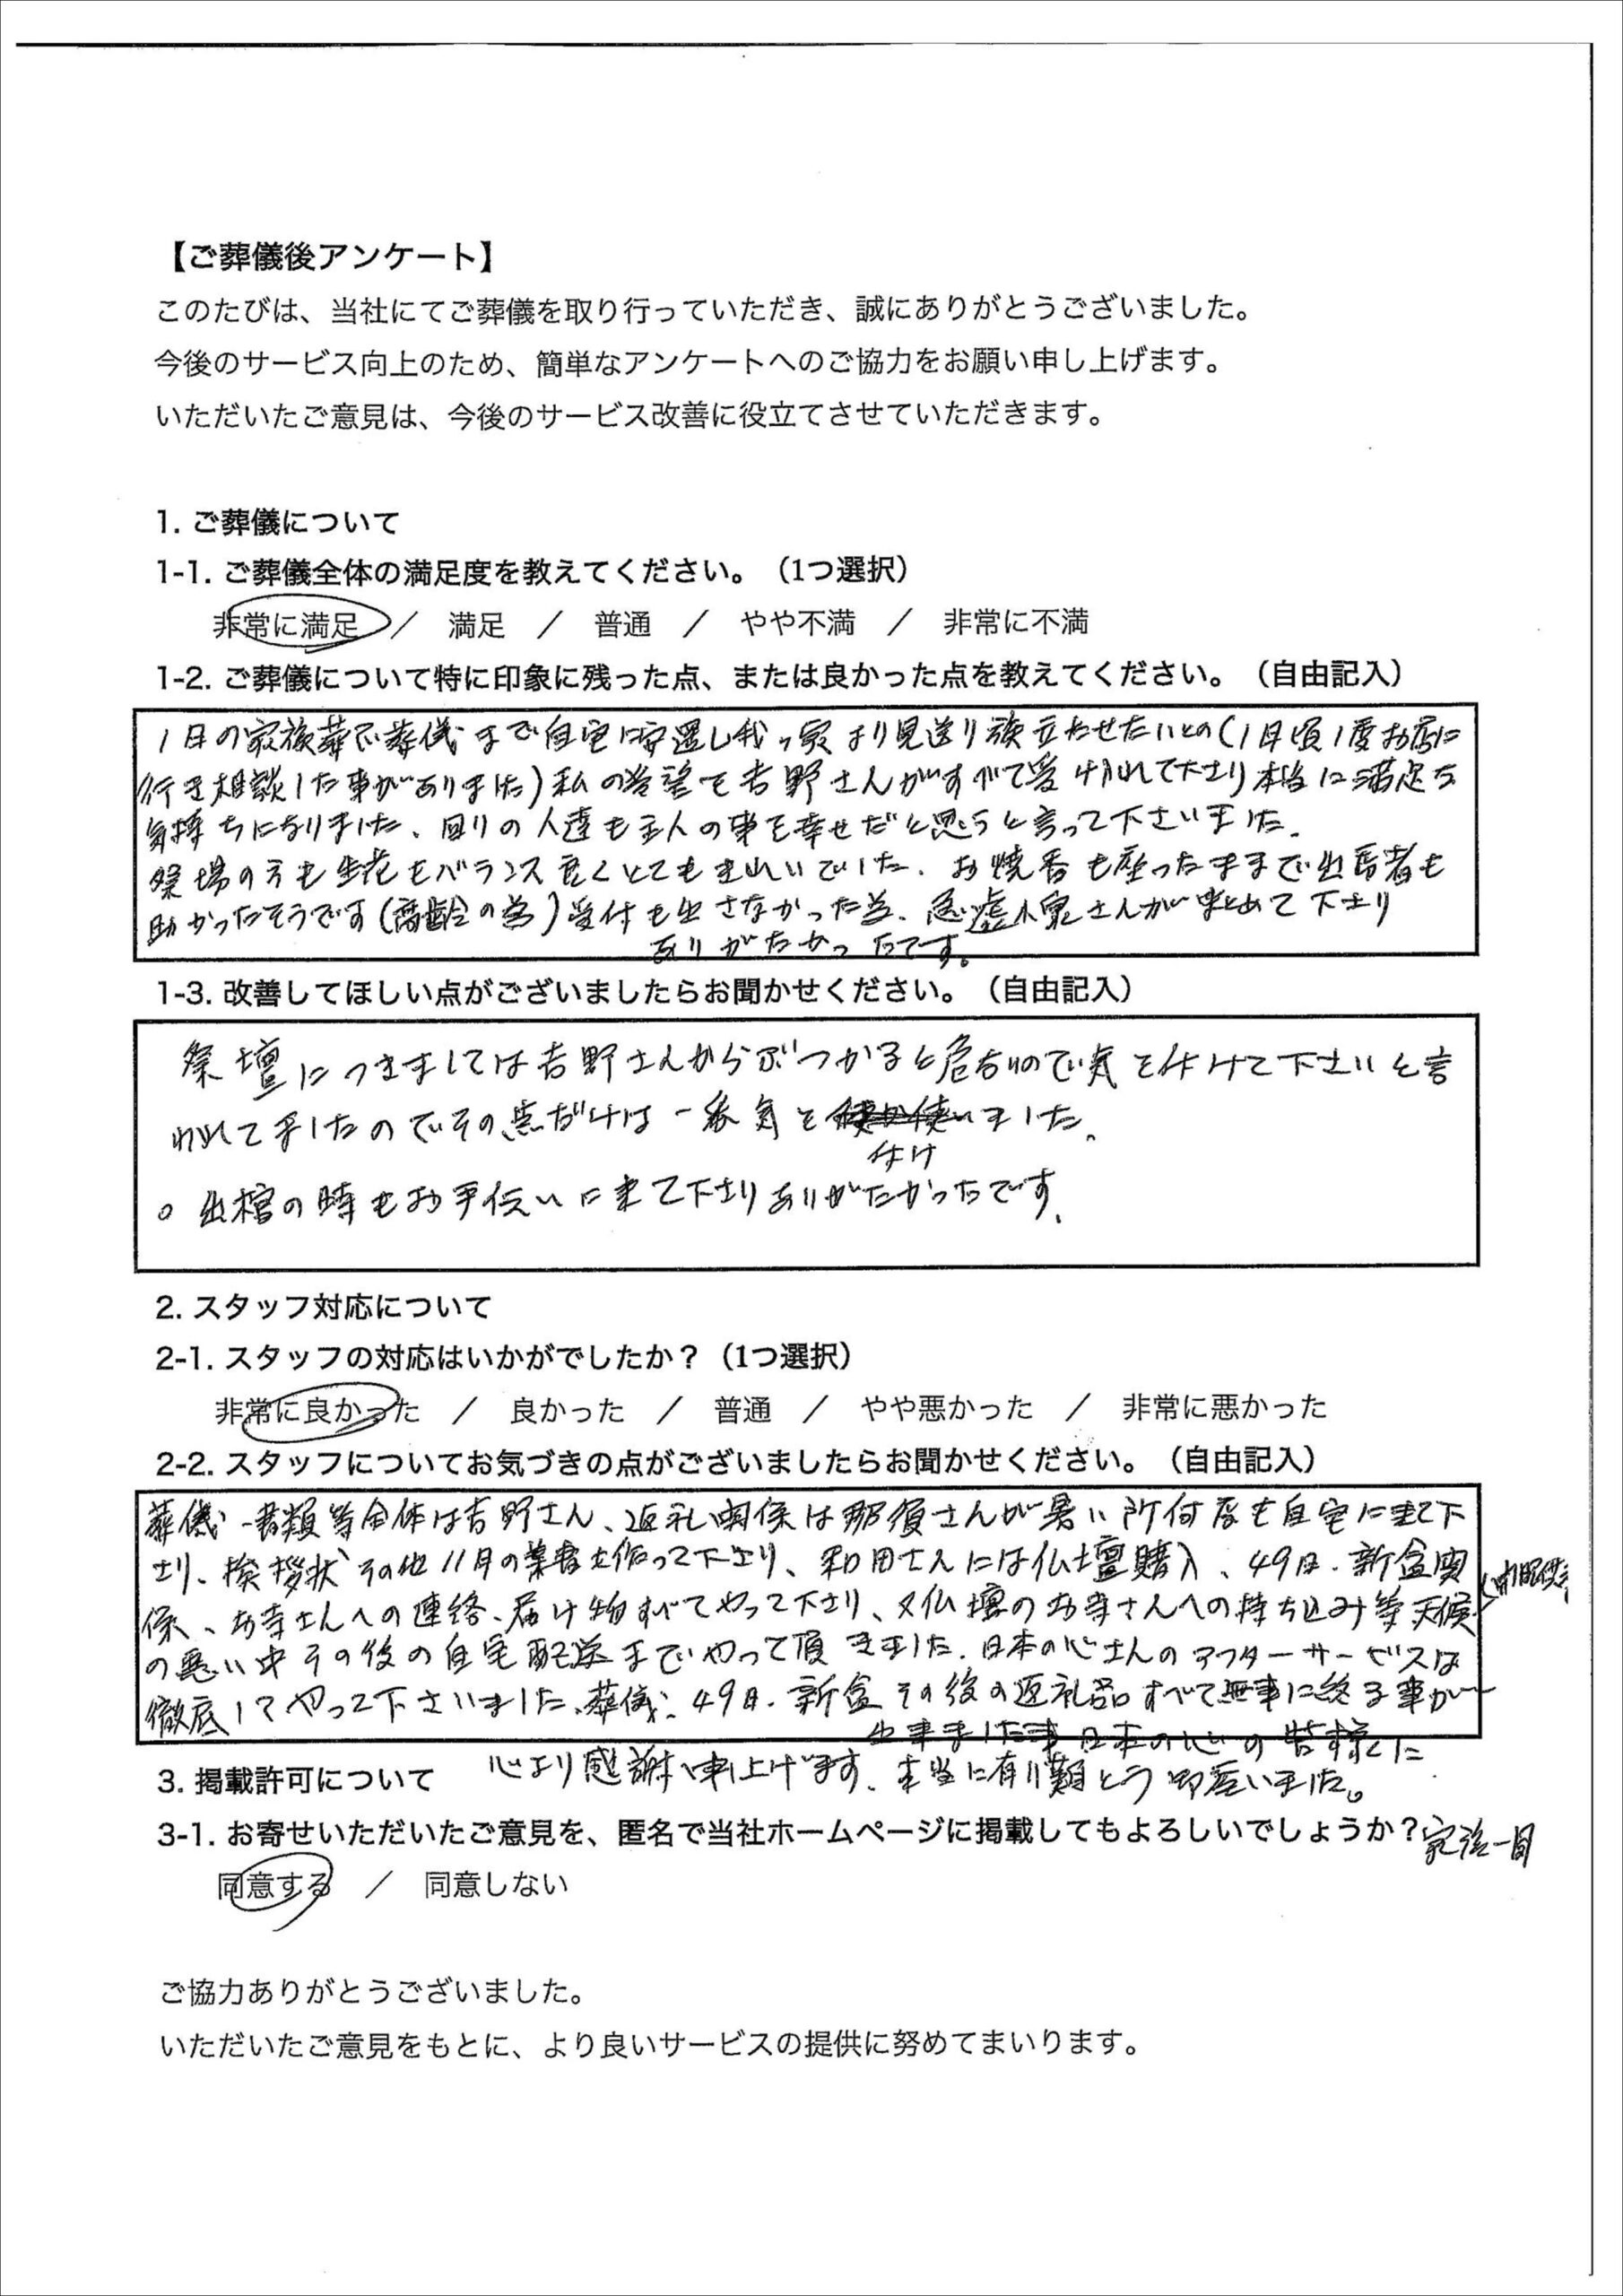 【ご葬儀後アンケート】
このたびは、当社にてご葬儀を取り行っていただき、誠にありがとうございました。
今後のサービス向上のため、簡単なアンケートへのご協力をお願い申し上げます。
いただいたご意見は、今後のサービス改善に役立てさせていただきます。
1. ご葬儀について
1-1. ご葬儀全体の満足度を教えてください。（1つ選択）
非常に満足 ／ 満足 ／ 普通 ／ やや不満 ／ 非常に不満
1-2. ご葬儀について特に印象に残った点、または良かった点を教えてください。（自由記入）
1日の家族葬で葬儀まで自宅に安置し我が家より見送り旅立たせたいとの(1月頃1度お店に
行き相談した事がありました)私の希望を吉野さんがすべて受け入れて下さり本当に満足な
気持ちになりました、回りの人達も主人の事を幸せだと思うと言って下さいました。
祭場の方も生花もバランス良くとてもきれいでした。お焼香も座ったままで出席者も
助かったそうです(高齢の為)受付も出さなかった為、急遽小泉さんがまとめて下さり
ありがたかったです。
1-3. 改善してほしい点がございましたらお聞かせください。（自由記入）
祭壇につきましては吉野さんからぶつかると危ないので気を付けて下さいと言
われてましたのでその点だけは一番気を付けました。
○出棺の時もお手伝いに来て下さりありがたかったです。
2. スタッフ対応について
2-1. スタッフの対応はいかがでしたか？（1つ選択）
非常に良かった ／ 良かった ／ 普通 ／ やや悪かった ／ 非常に悪かった
2-2. スタッフについてお気づきの点がございましたらお聞かせください。（自由記入）
葬儀、書類等全体は吉野さん、返礼関係は那須さんが暑い所何度も自宅に来て下
さり、挨拶状その他11月の葉書を作って下さり、和田さんには仏壇購入、49日、新盆関
係、お寺さんへの連絡、届け物すべてやって下さり、又仏壇のお寺さんへの持ち込み等天候
の悪い中その後の自宅配送までやって頂きました。日本の心さんのアフターサービスは
徹底してやって下さいました、葬儀、49日、新盆その後の返礼品すべて無事に終る事が
出来ました事日本の心の皆様に
心より感謝申し上げます、本当に有り難とう御座いました。
3. 掲載許可について
3-1. お寄せいただいたご意見を、匿名で当社ホームページに掲載してもよろしいでしょうか？
家族一同
同意する ／ 同意しない
ご協力ありがとうございました。
いただいたご意見をもとに、より良いサービスの提供に努めてまいります。